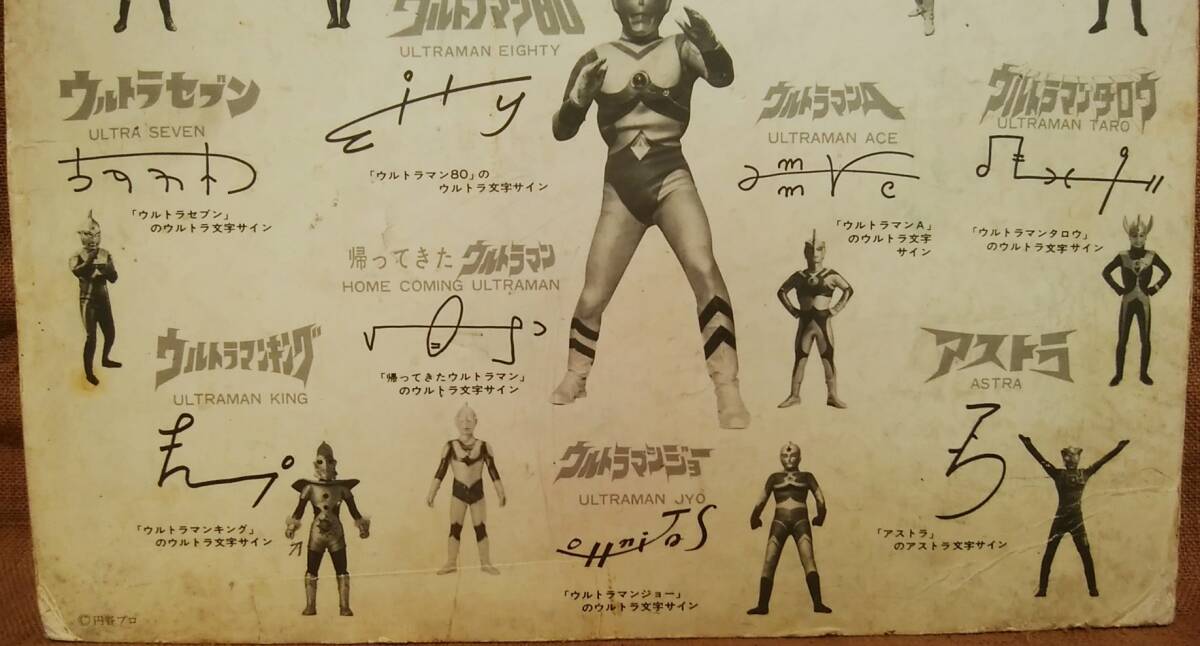 ウルトラマン80
ULTRAMAN EIGHTY
「ウルトラマン80」の
ウルトラ文字サイン
ウルトラセブン
ULTRA SEVEN
「ウルトラセブン」
のウルトラ文字サイン
ウルトラマンA
ULTRAMAN ACE
「ウルトラマンA」
のウルトラ文字
サイン
ウルトラマンタロウ
ULTRAMAN TARO
「ウルトラマンタロウ」
のウルトラ文字サイン
帰ってきたウルトラマン
HOME COMING ULTRAMAN
「帰ってきたウルトラマン」
のウルトラ文字サイン
ウルトラマンキング
ULTRAMAN KING
「ウルトラマンキング」
のウルトラ文字サイン
ウルトラマンジョー
ULTRAMAN JYŌ
「ウルトラマンジョー」
のウルトラ文字サイン
アストラ
ASTRA
「アストラ」
のアストラ文字サイン
©円谷プロ